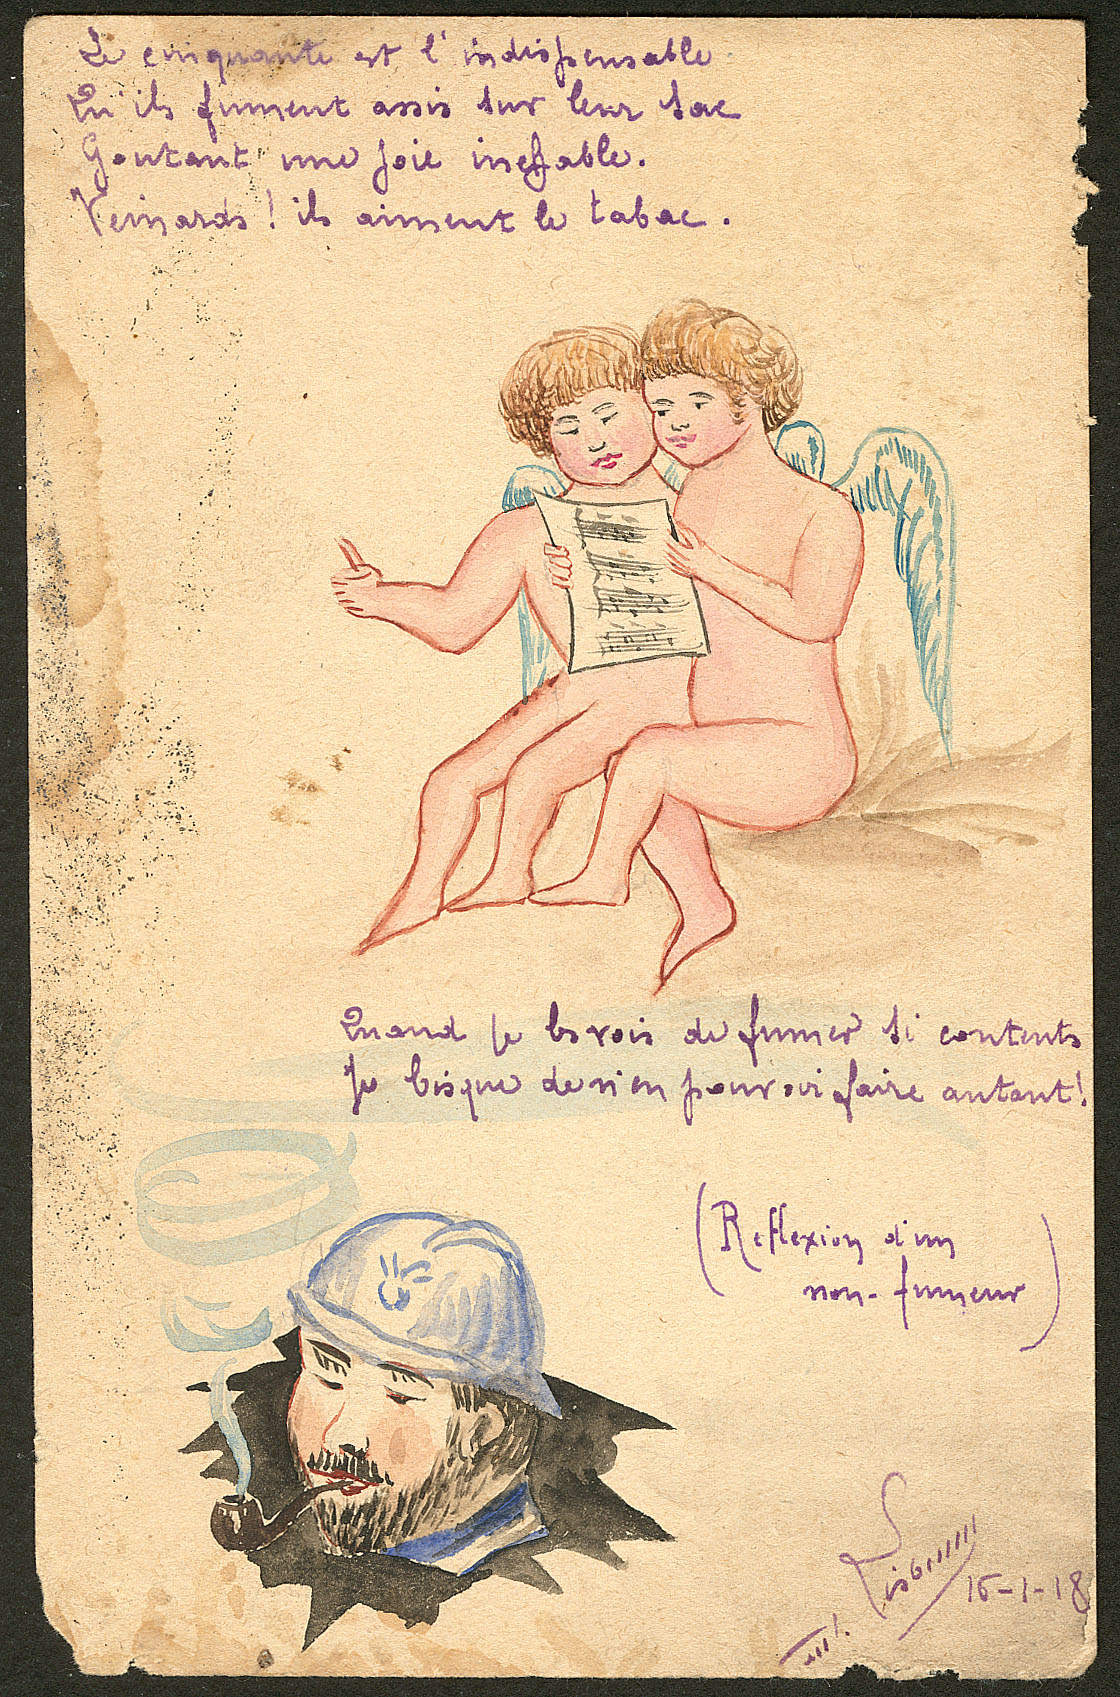 Le cinquante est l'indispensable
Qu'ils fument assis sur leur sac
Goutant une joie ineffable.
Veinards! ils aiment le tabac.
Quand je les vois de fumer si contents
Je bisque de n'en pouvoir faire autant!
(Reflexion d'un
non-fumeur)
16-1-18